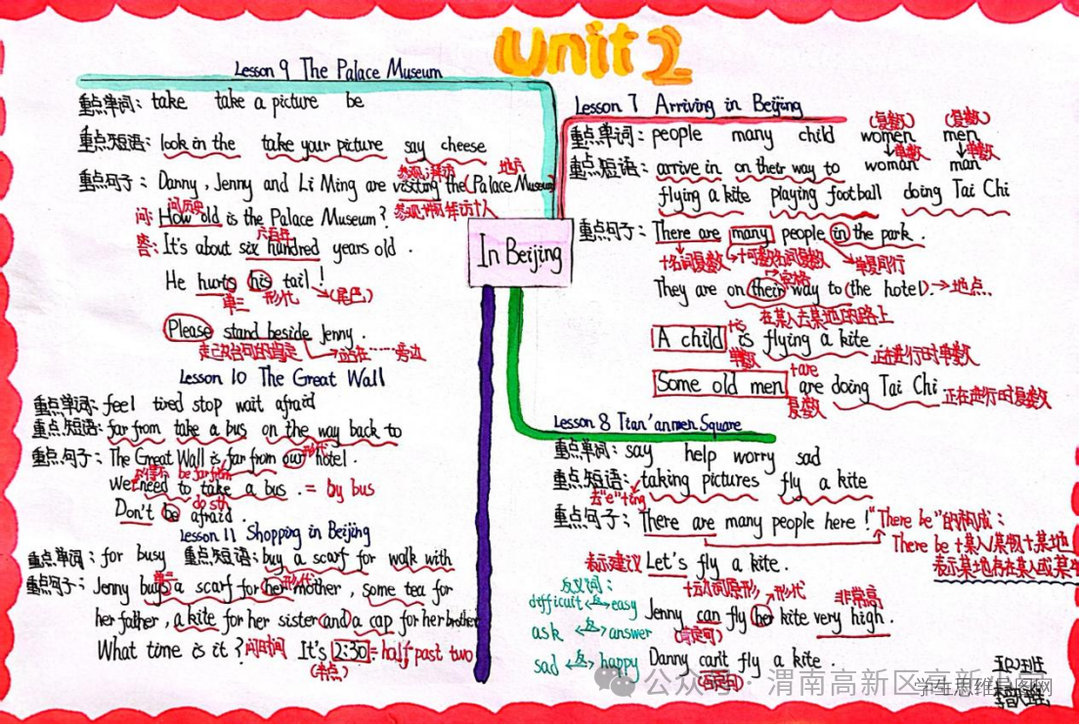 Unit 2
In Beijing
Lesson 7 Arriving in Beijing
重点单词: people many child women men
(复数) (复数)
→单数 →单数
woman man
重点短语: arrive in on their way to
flying a kite playing football doing Tai Chi
重点句子: There are many people in the park.
+名词复数 +可数名词复数
They are on their way to (the hotel). →地点
在某人去某地的路上
A child is flying a kite.
单数 正在进行时单数
Some old men are doing Tai Chi
+are
复数 正在进行时复数
Lesson 8 Tian'anmen Square
重点单词: say help worry sad
重点短语: taking pictures fly a kite
去"e"+ing
重点句子: There are many people here!
"There be"的构成:
There be +某人/某物+某地
表示某地存在某人或某
表示建议 Let's fly a kite.
+动词原形 形代 非常高
Jenny can fly her kite very high.
(肯定句)
Danny can't fly a kite.
反义词:
difficult 反 easy
ask 反 answer
sad 反 happy
Lesson 9 The Palace Museum
重点单词: take take a picture be
重点短语: look in the take your picture say cheese
重点句子: Danny, Jenny and Li Ming are visiting the (Palace Museum)
地方
问: How old is the Palace Museum?
问历史
六百年
答: It's about six hundred years old.
He hurts his tail!
单三 形代 →(尾巴)
Please stand beside Jenny.
站在……旁边
Lesson 10 The Great Wall
重点单词: feel tired stop wait afraid
重点短语: far from take a bus on the way back to
重点句子: The Great Wall is far from our hotel.
形代
be far from
We need to take a bus. = by bus
do sth
Don't be afraid.
Lesson 11 Shopping in Beijing
重点单词: for busy 重点短语: buy a scarf for walk with
重点句子: Jenny buys a scarf for her mother, some tea for
单三 形代
her father, a kite for her sister and a cap for her brother
What time is it? 问时间 It's 2:30 = half past two
(半点)
公众号 · 渭南高新区高新
学生思维导图网